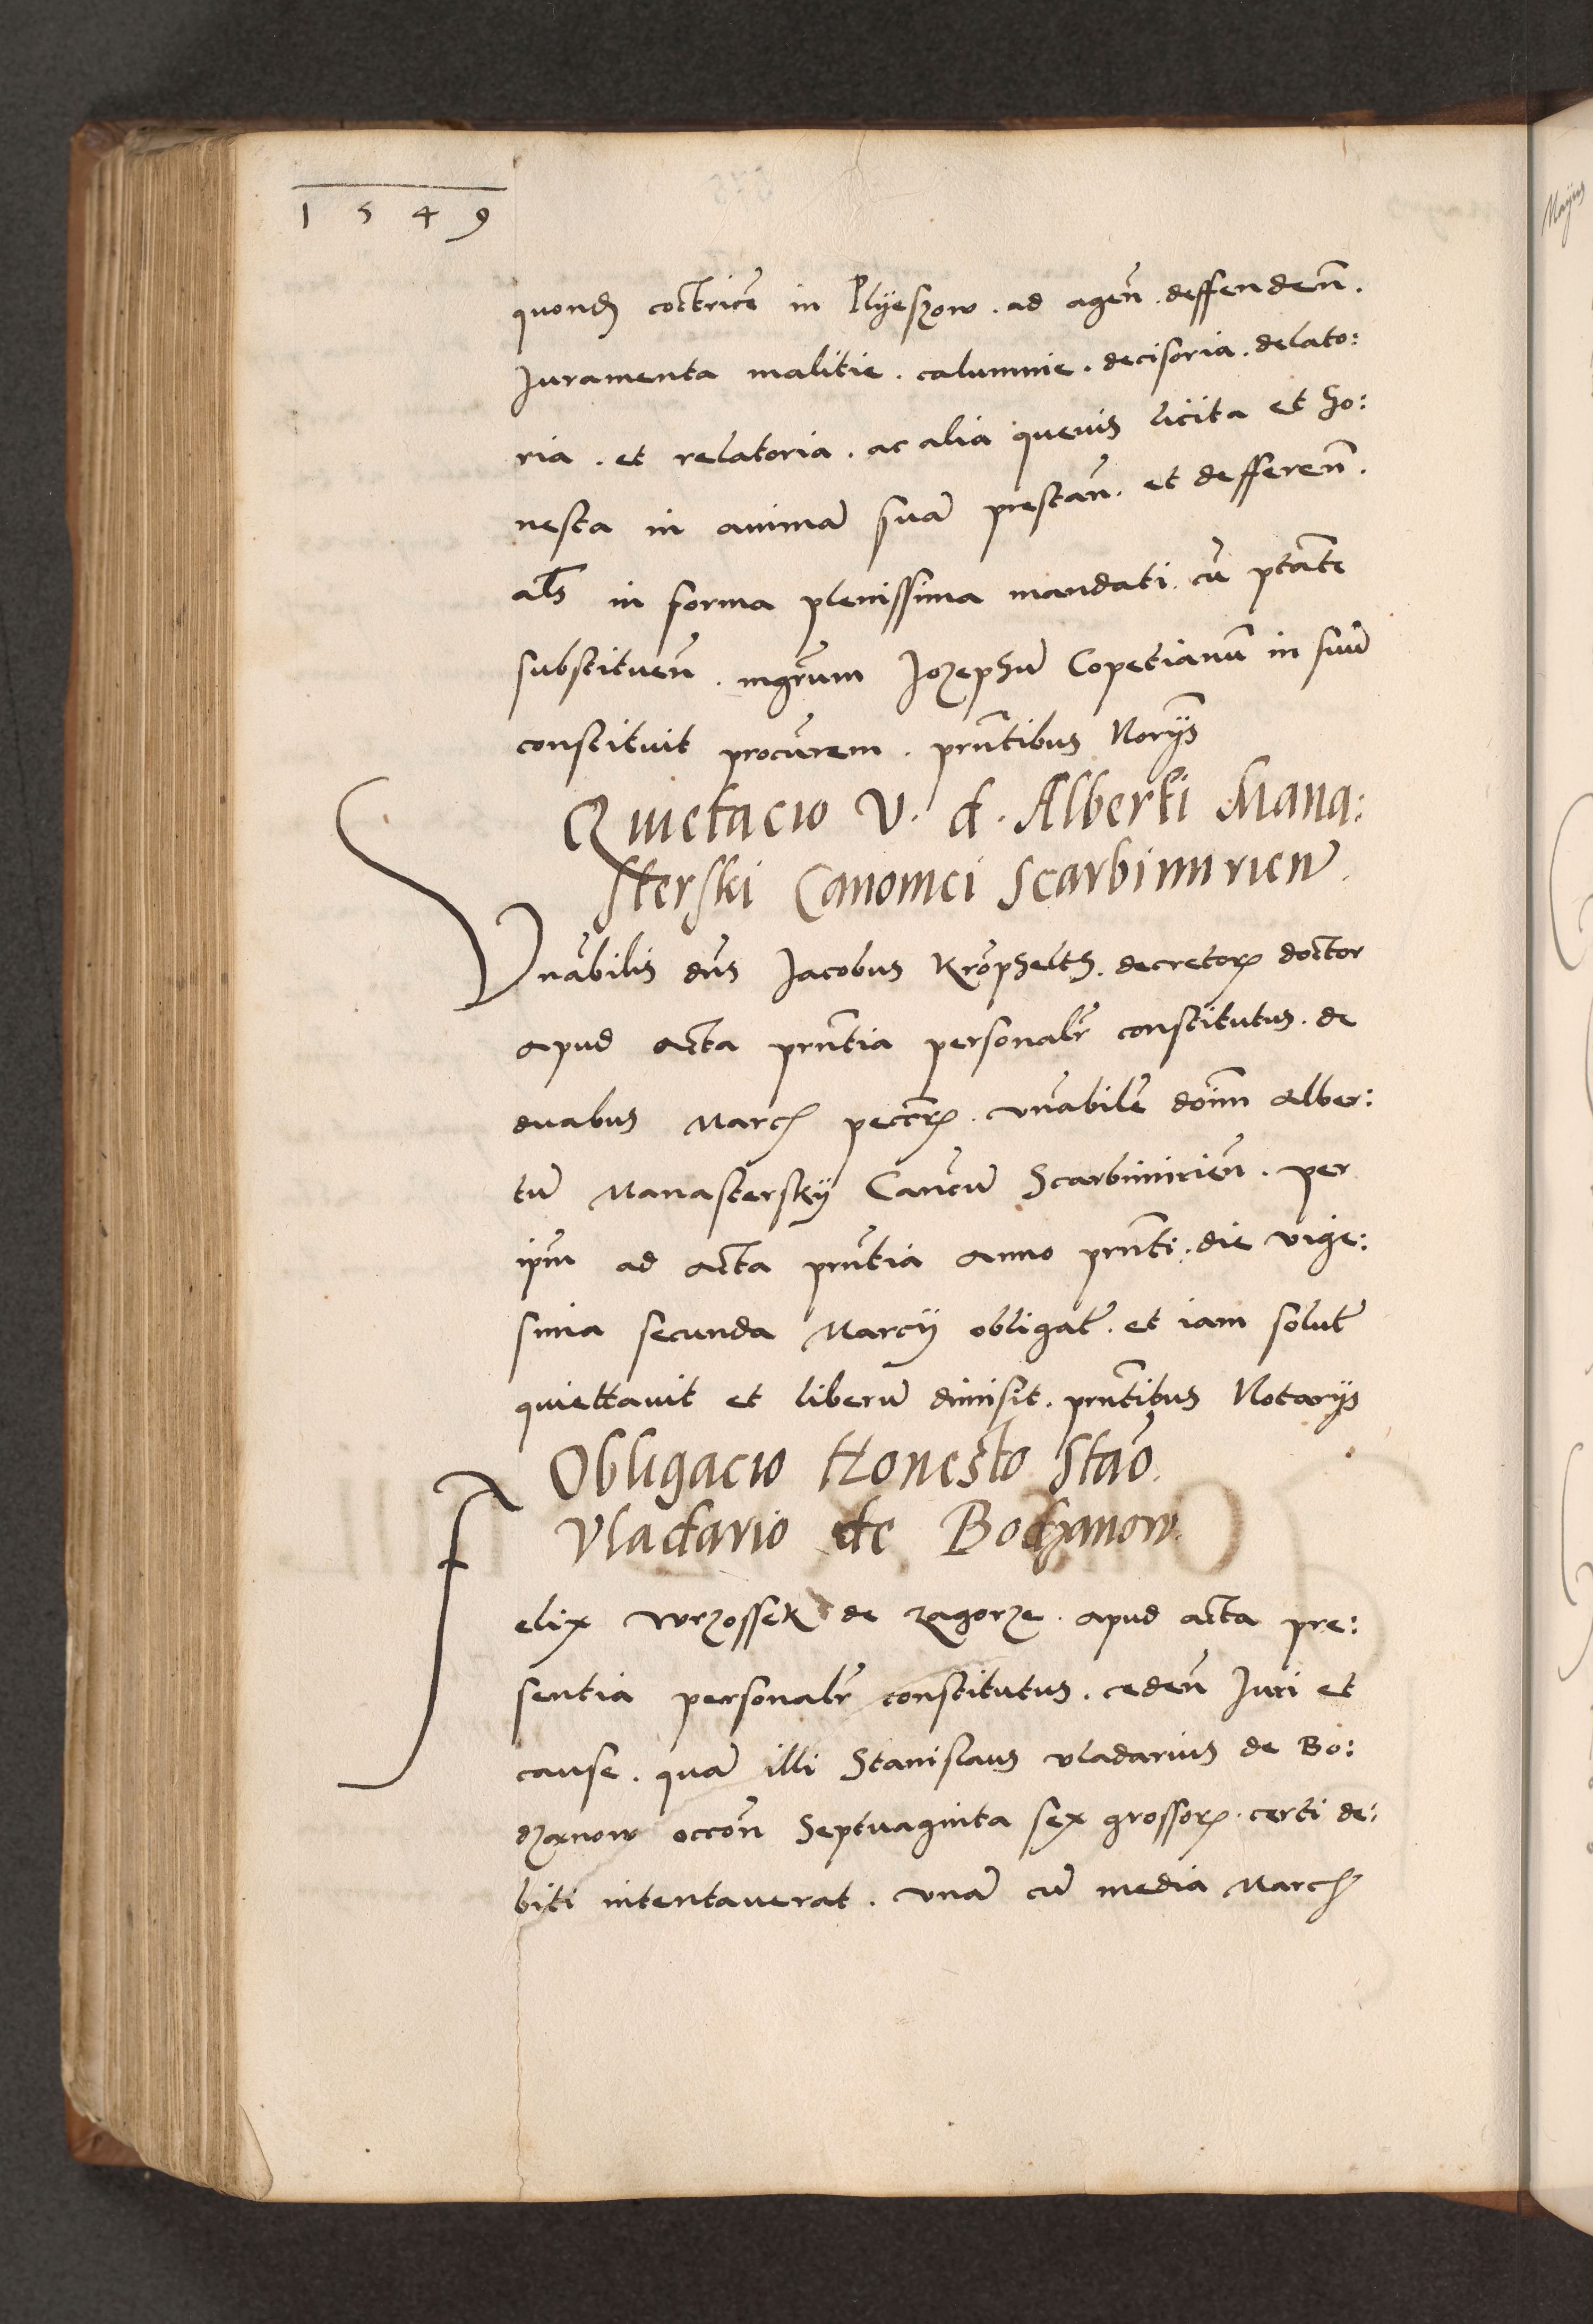 1549
quond coctricē in Plyeszow . ad agen̄ . deffenden̄ .
Juramenta malitie . calumnie . decisoria . delato:
ria . et relatoria . ac alia quevis licita et ho:
nesta in animā suā prestan̄ . et defferen̄ .
als in forma plenissima mandati . cū ptāte
substituen̄ . mgrum Jozephū Copetianū in suū
constituit procurem . prntibus Norijs
Quietacio V. d. Alberti Mana:
sterski Canonici Scarbimirien̄ .
Vnābilis dns Jacobus Kromphelth . decretoꝝ doctor
apud acta prntia personalr constitutus . de
duabus March peccrꝝ . vnābilē doim Alber:
tū Manastersky Canōcū Scarbimirien̄ . per
ipm ad acta prntia anno prnti . die vige:
sima secunda Marcij obligat . et iam solut
quiettavit et liberū dimisit . prntibus Notarijs
Obligacio Honesto Stāo .
Vladario de Bodzanow .
Felix Wrzossek de Zagorze . apud acta pre:
sentia personalr constitutus . ceden̄ Juri et
cause . quā illi Stanislaus vladarius de Bo:
dzanow occōn̄ Septuaginta sex grossoꝝ . certi de:
biti intentaverat . vnā cū media March
Majus